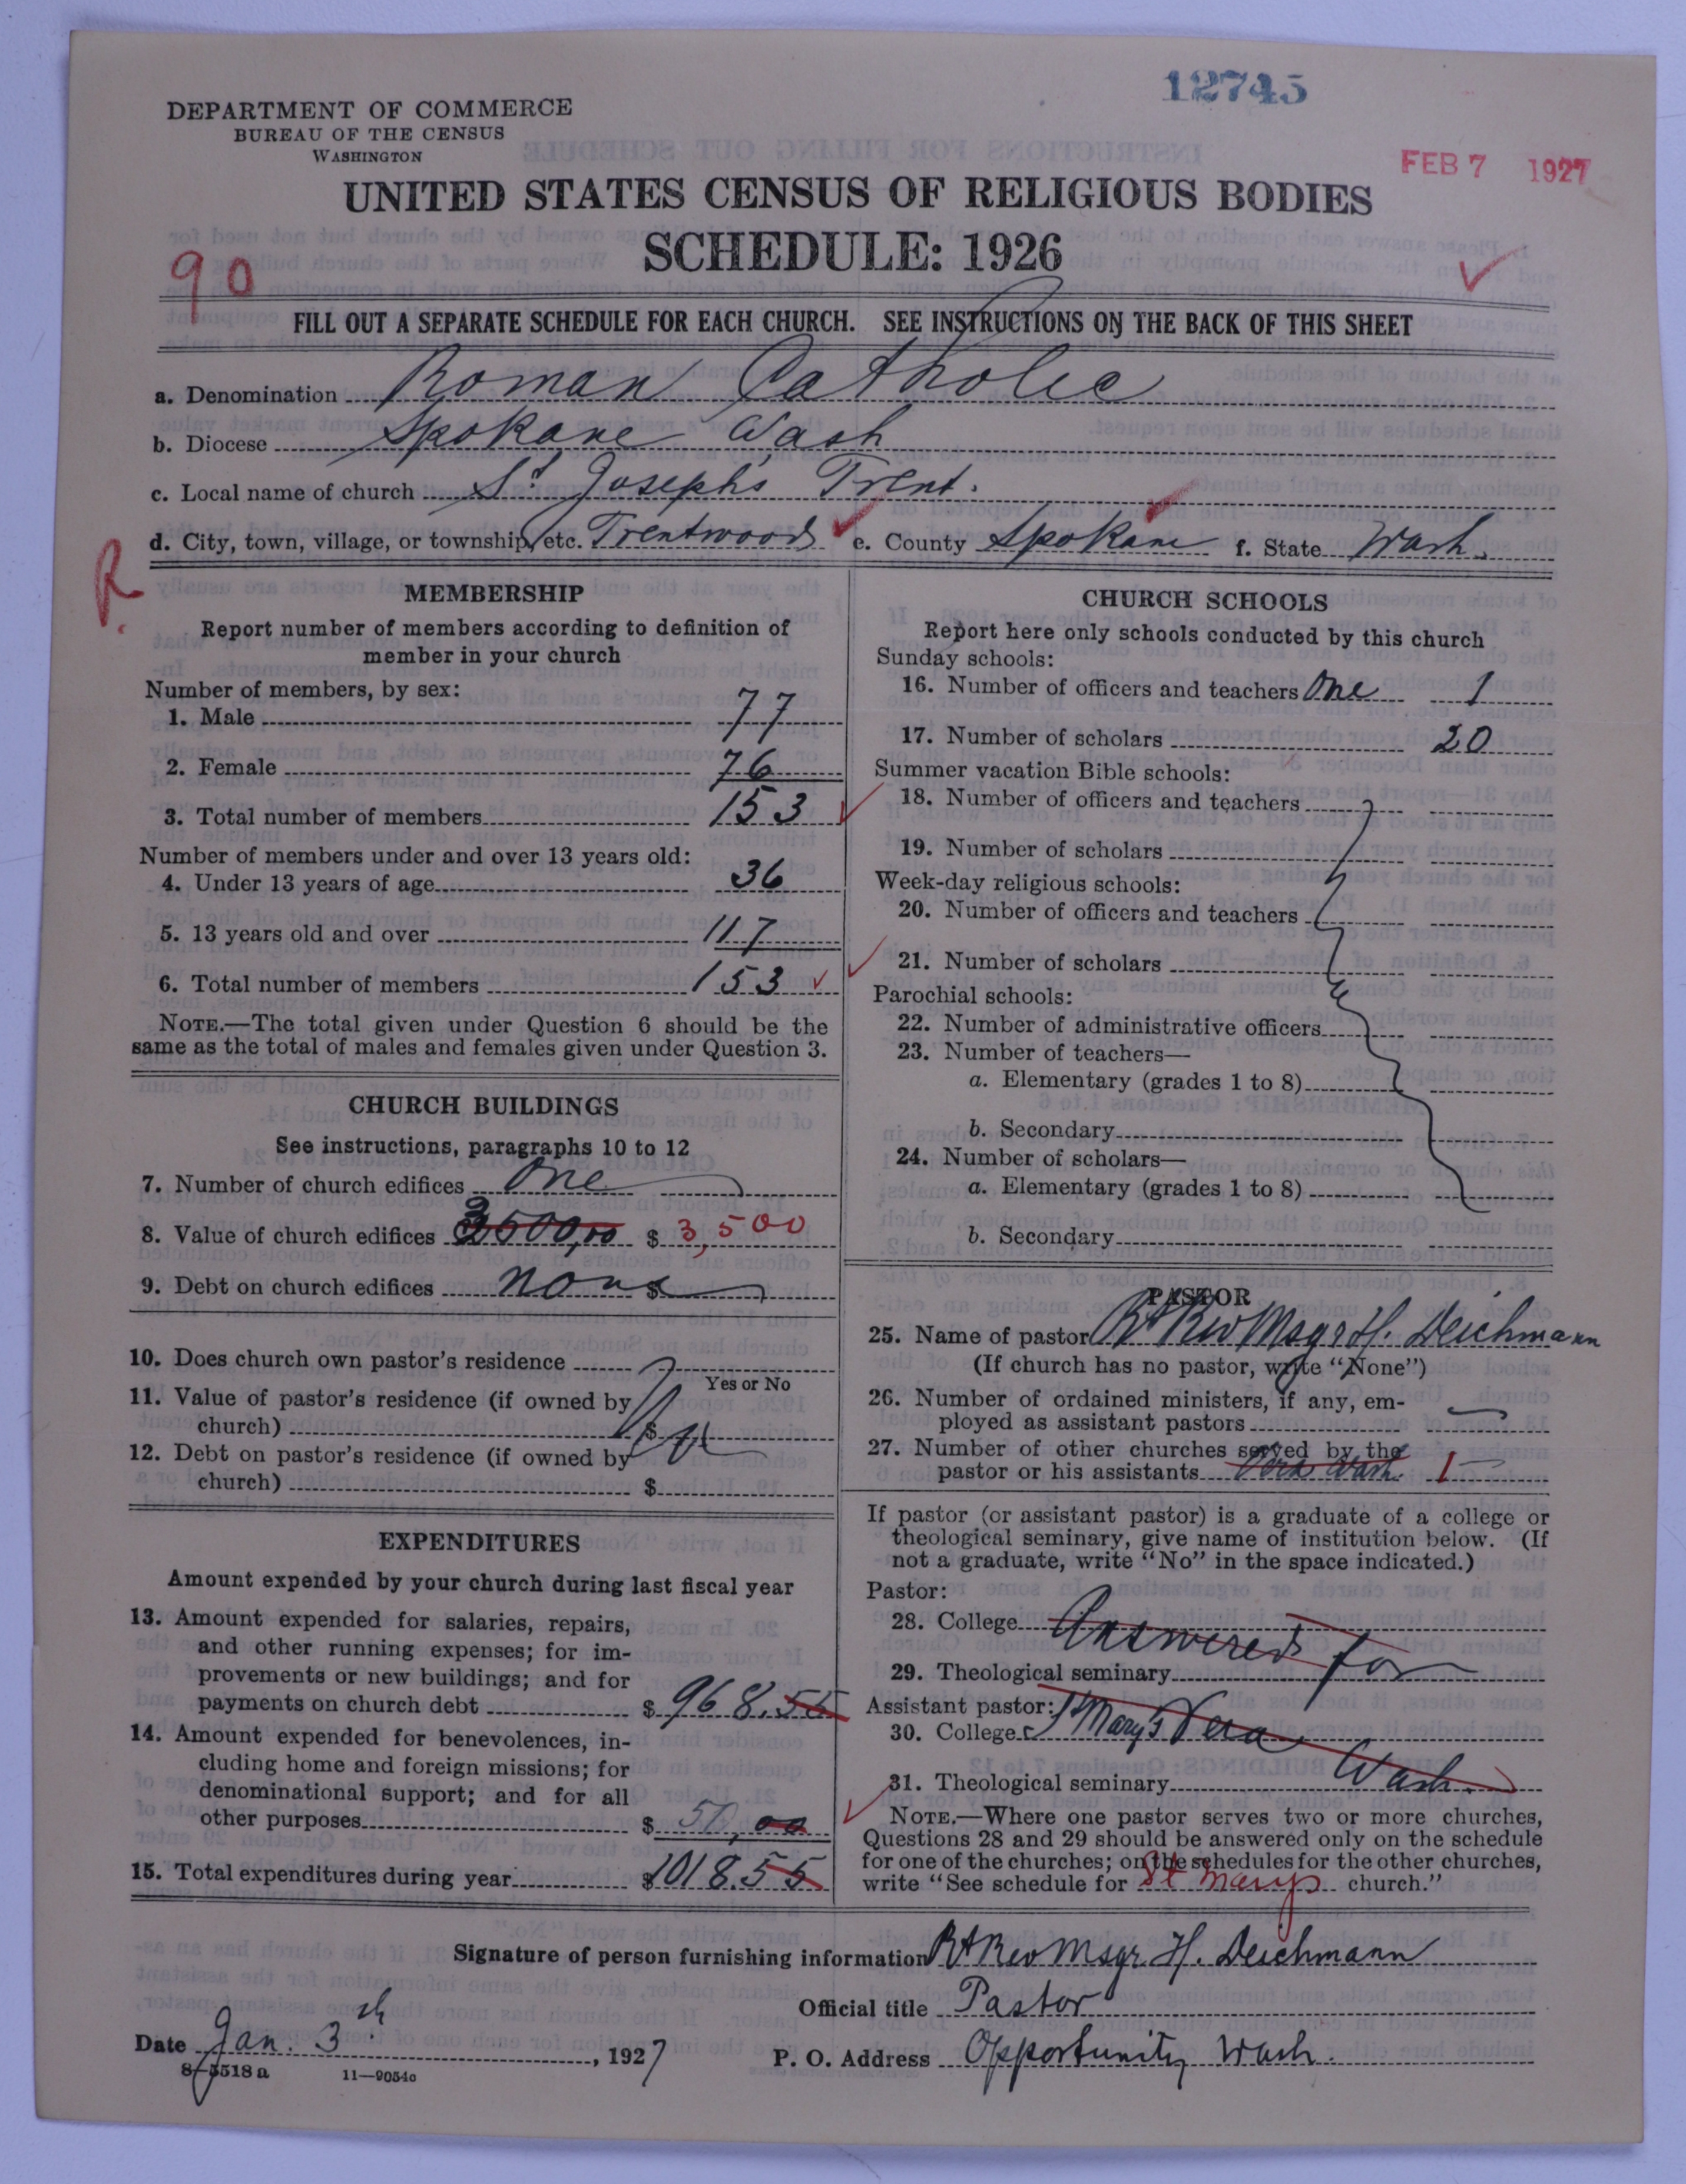 12745
DEPARTMENT OF COMMERCE
BUREAU OF THE CENSUS
WASHINGTON
FEB 7 1927
UNITED STATES CENSUS OF RELIGIOUS BODIES
SCHEDULE: 1926
90
FILL OUT A SEPARATE SCHEDULE FOR EACH CHURCH. SEE INSTRUCTIONS ON THE BACK OF THIS SHEET
a. Denomination Roman Catholic
b. Diocese Spokane Wash
c. Local name of church St Joseph's Trent.
d. City, town, village, or township, etc. Trentwood e. County Spokane f. State Wash.
R.
MEMBERSHIP
Report number of members according to definition of
member in your church
Number of members, by sex:
1. Male 77
2. Female 76
3. Total number of members 153
Number of members under and over 13 years old:
4. Under 13 years of age 36
5. 13 years old and over 117
6. Total number of members 153
NOTE.—The total given under Question 6 should be the
same as the total of males and females given under Question 3.
CHURCH BUILDINGS
See instructions, paragraphs 10 to 12
7. Number of church edifices One
8. Value of church edifices 3500,00 $ 3,500
9. Debt on church edifices none $
10. Does church own pastor's residence
Yes or No
11. Value of pastor's residence (if owned by
church) $
12. Debt on pastor's residence (if owned by
church) $
EXPENDITURES
Amount expended by your church during last fiscal year
13. Amount expended for salaries, repairs,
and other running expenses; for im-
provements or new buildings; and for
payments on church debt $ 968.55
14. Amount expended for benevolences, in-
cluding home and foreign missions; for
denominational support; and for all
other purposes $ 50,00
15. Total expenditures during year $ 1018.55
CHURCH SCHOOLS
Report here only schools conducted by this church
Sunday schools:
16. Number of officers and teachers One 1
17. Number of scholars 20
Summer vacation Bible schools:
18. Number of officers and teachers
19. Number of scholars
Week-day religious schools:
20. Number of officers and teachers
21. Number of scholars
Parochial schools:
22. Number of administrative officers
23. Number of teachers—
a. Elementary (grades 1 to 8)
b. Secondary
24. Number of scholars—
a. Elementary (grades 1 to 8)
b. Secondary
PASTOR
25. Name of pastor Rt Rev Msgr H. Deichmann
(If church has no pastor, write "None")
26. Number of ordained ministers, if any, em-
ployed as assistant pastors
27. Number of other churches served by the
pastor or his assistants Vera Wash. 1
If pastor (or assistant pastor) is a graduate of a college or
theological seminary, give name of institution below. (If
not a graduate, write "No" in the space indicated.)
Pastor:
28. College Answered for
29. Theological seminary
Assistant pastor:
30. College St Mary's Vera
31. Theological seminary Wash.
NOTE.—Where one pastor serves two or more churches,
Questions 28 and 29 should be answered only on the schedule
for one of the churches; on the schedules for the other churches,
write "See schedule for St Marys church."
Signature of person furnishing information Rt Rev Msgr. H. Deichmann
Official title Pastor
Date Jan. 3th, 1927
P. O. Address Opportunity Wash.
8-5518 a 11—9054c